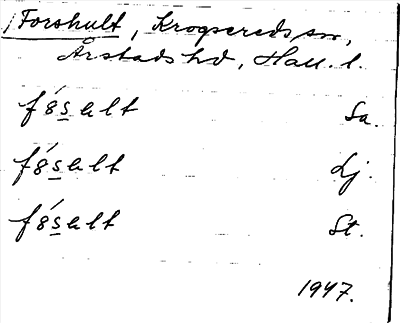 Forshult, Krogsereds sn,
Årstads hd, Hall. l.
fósult Sa.
fósult Lj.
fósult St.
1947.